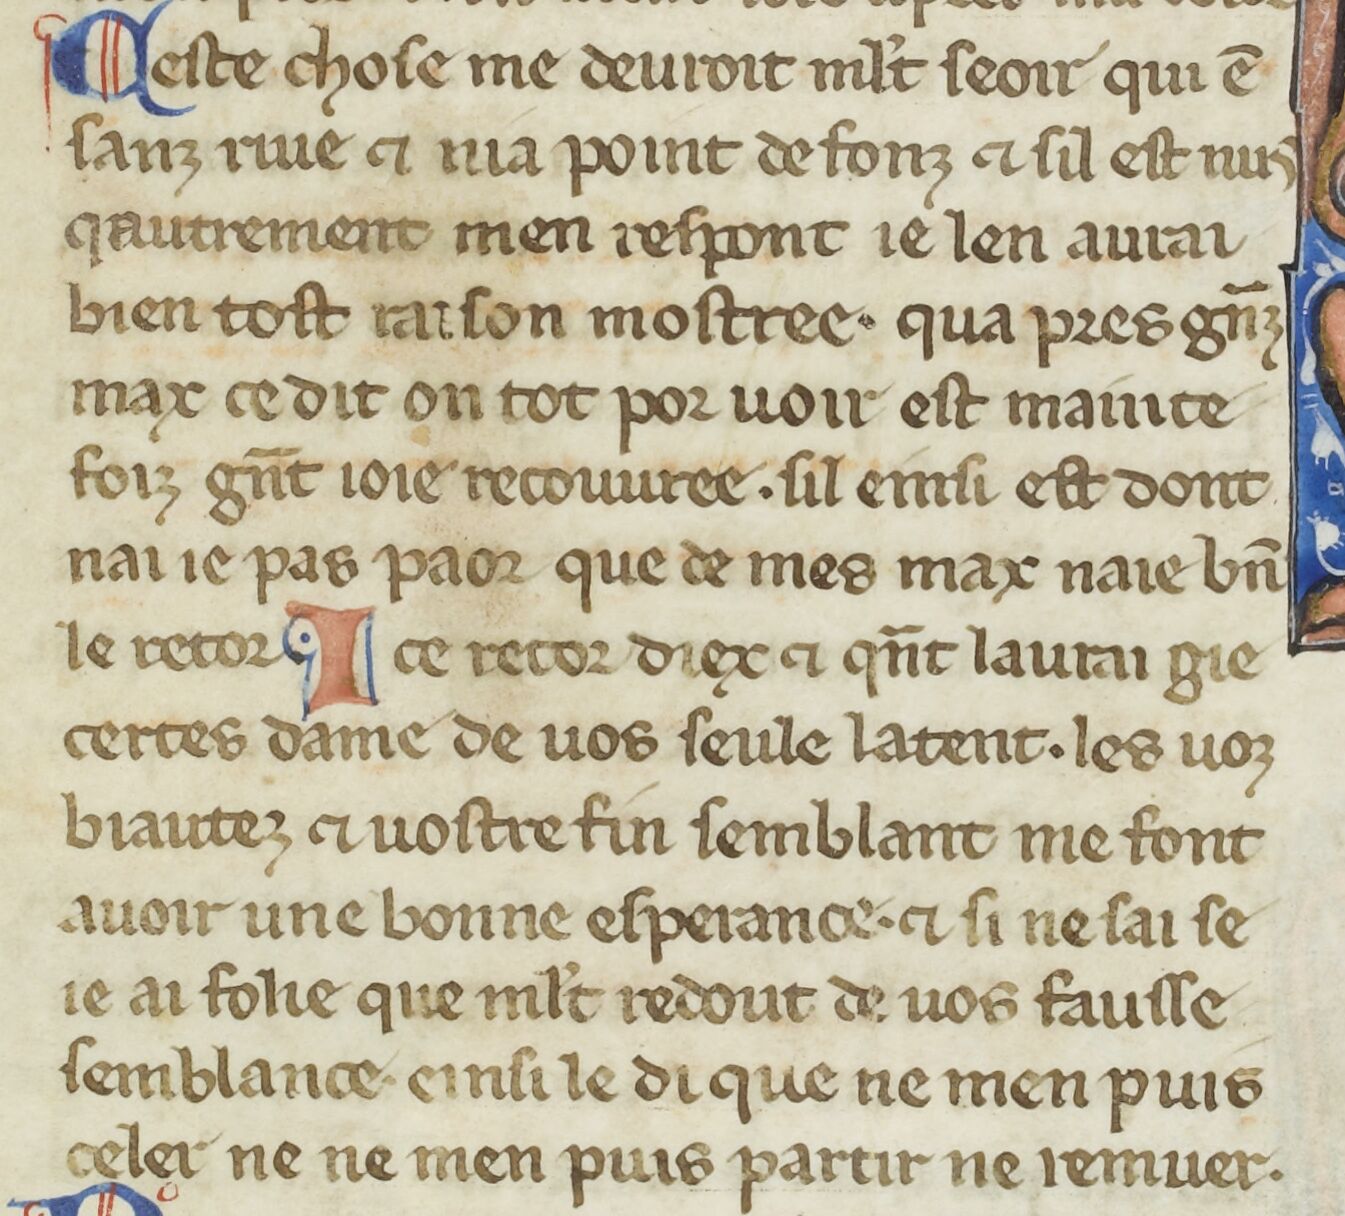 Ceste chose me deuroit ml't seoir qui ē
sanz riue ⁊ nia point de fonz ⁊ sil est nus
qautrement men respont ie len aurai
bien tost raison mostree· qua pres gn̄z
max ce dit on tot por uoir est mainte
foiz gn̄t ioie recouuree· sil einsi est dont
nai ie pas paor que de mes max naie bn̄
le retor I ce retor diex ⁊ qn̄t laurai gie
certes dame de uos seule latent· les uoz
biautez ⁊ uostre fin semblant me font
auoir une bonne esperance· ⁊ si ne sai se
ie ai folie que ml't redout de uos fausse
semblance· einsi le di que ne men puis
celer ne ne men puis partir ne remuer·